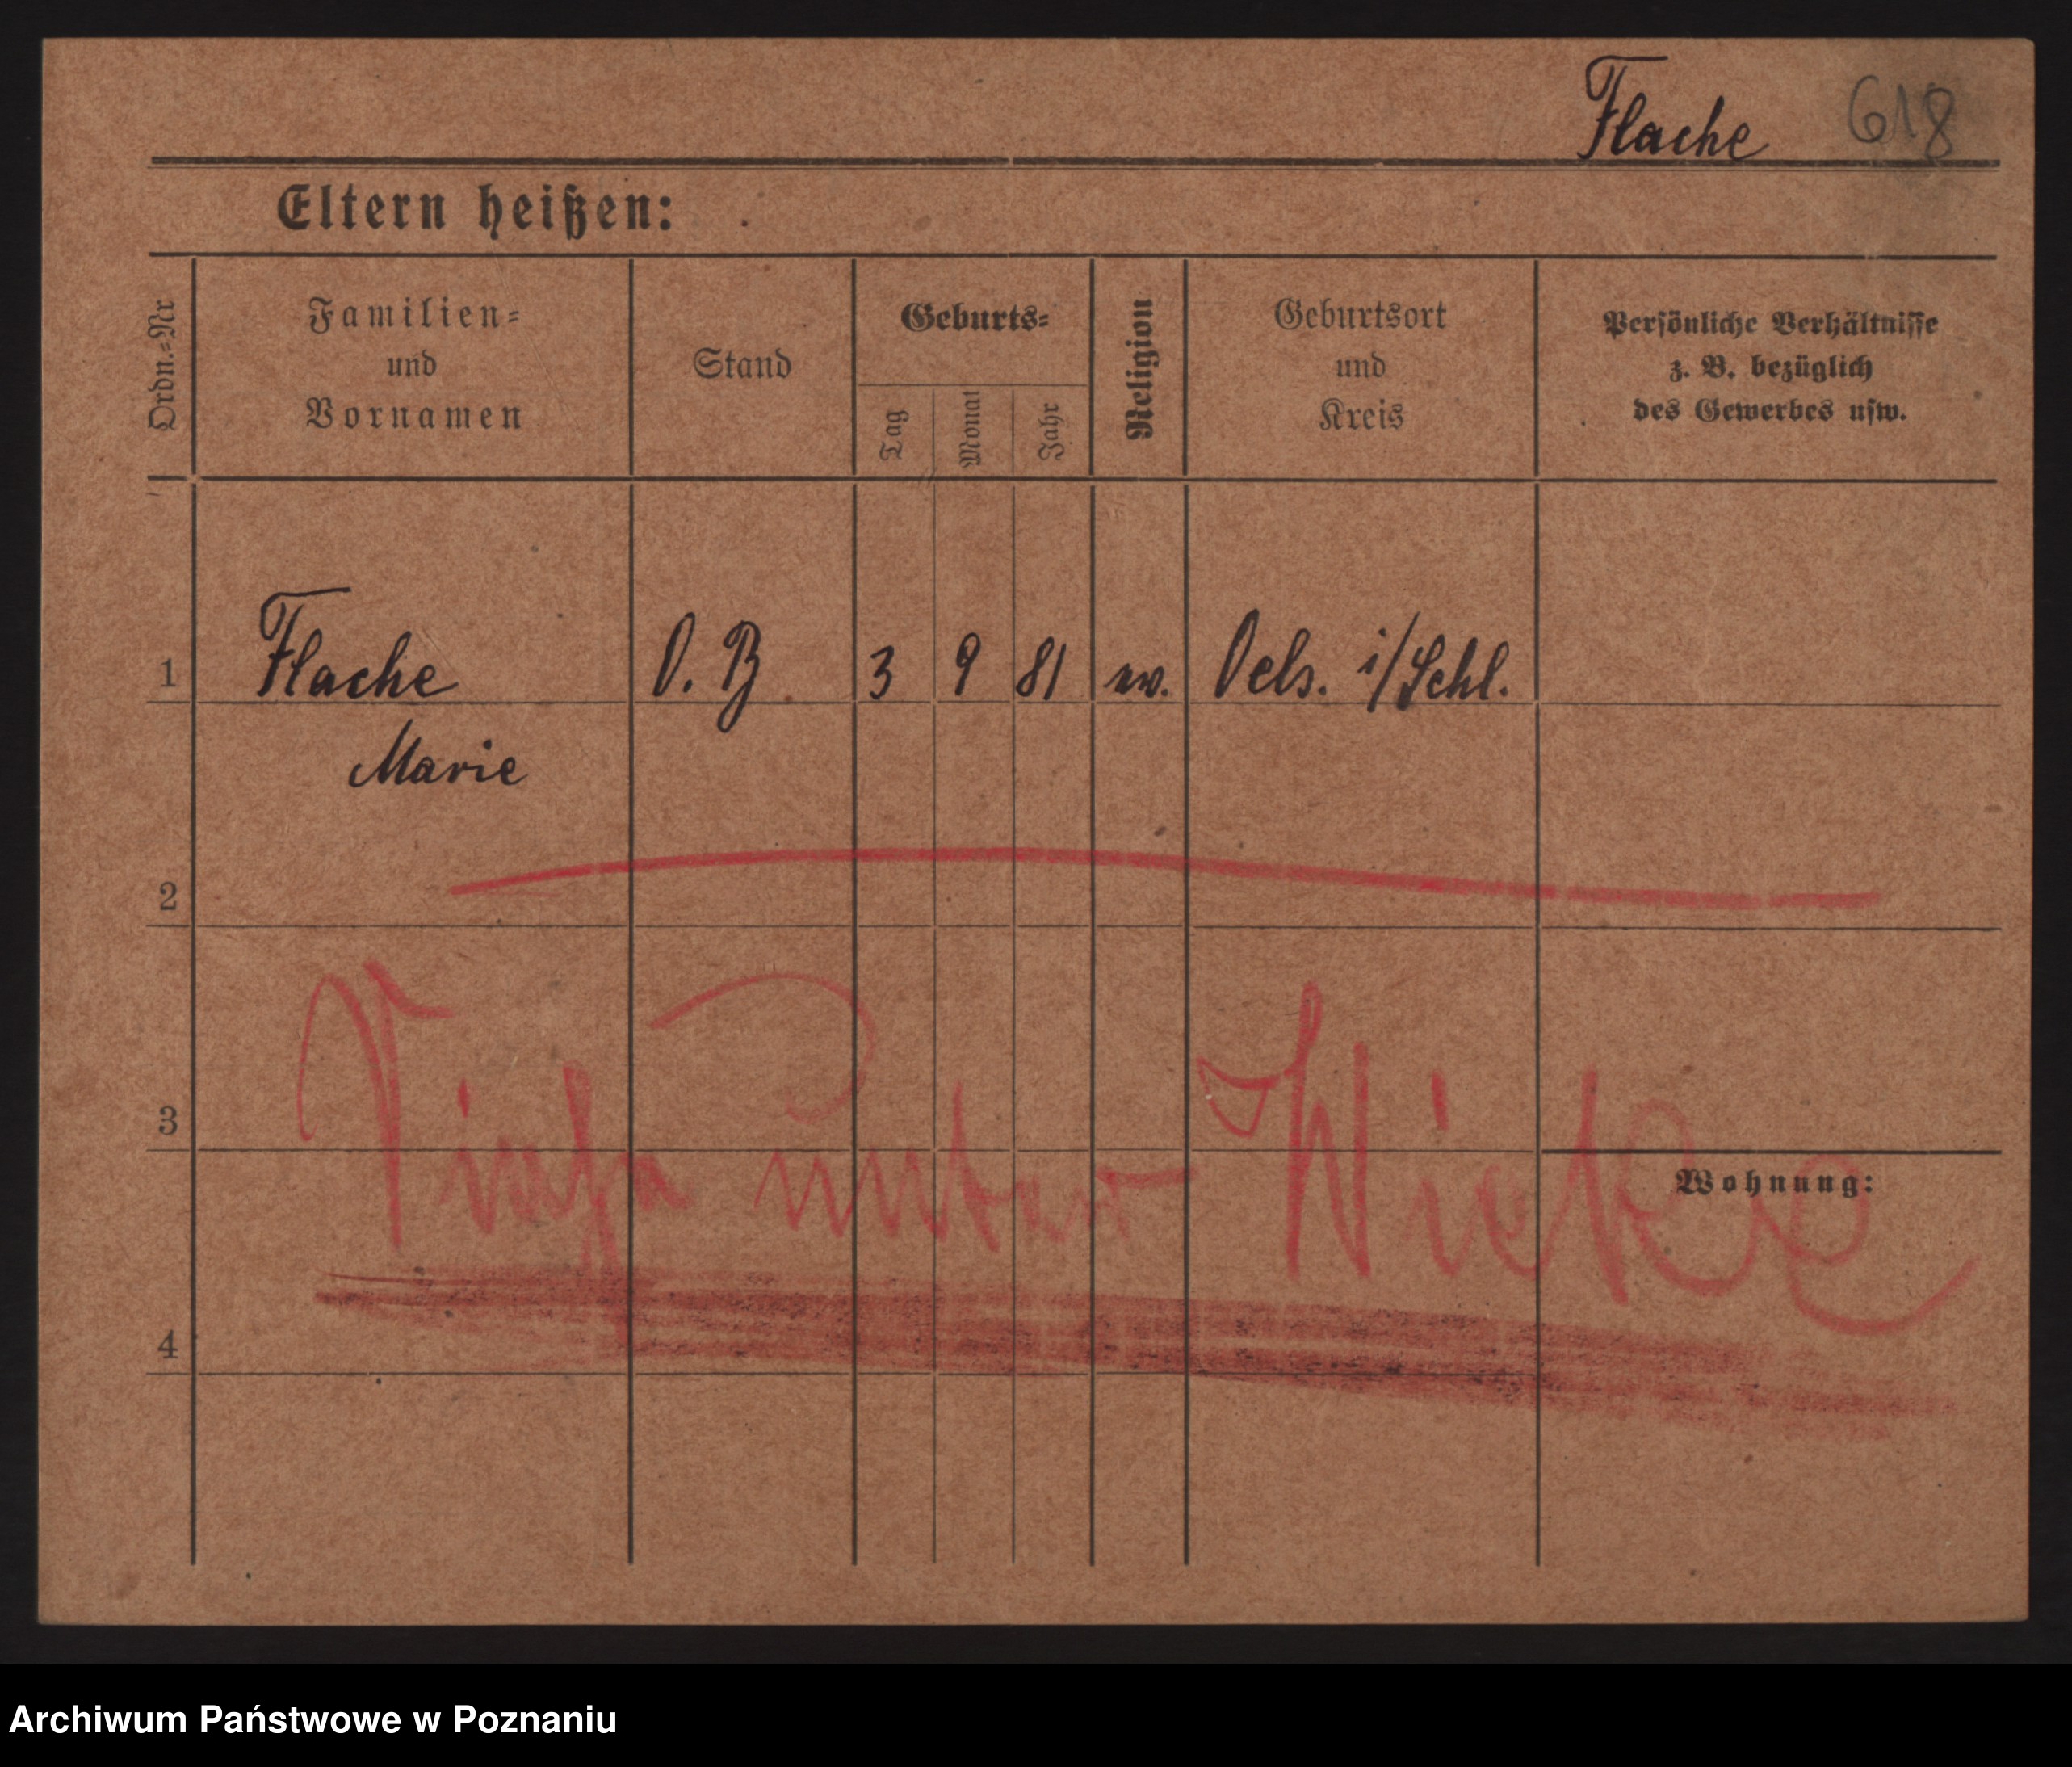 Flache 618
Eltern heißen:
Ordn.-Nr
Familien-
und
Vornamen
Stand
Geburts-
Tag
Monat
Jahr
Religion
Geburtsort
und
Kreis
Persönliche Verhältnisse
z. B. bezüglich
des Gewerbes usw.
1 Flache 3 9 81 ev. Oels. i/Schl.
Marie
2
3
Siehe unter
Wohnung:
4
Archiwum Państwowe w Poznaniu